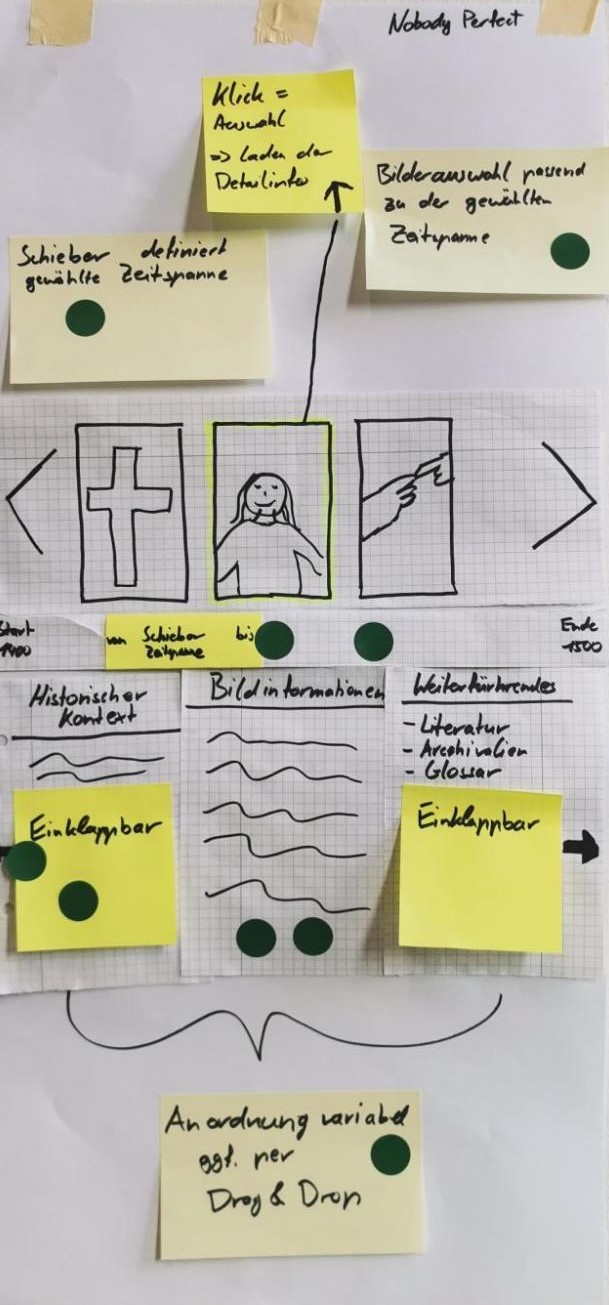 Nobody Perfect
Klick =
Auswahl
=> Laden der
Detailinfo
Bilderauswahl passend
zu der gewählten
Zeitspanne
Schieber definiert
gewählte Zeitspanne
Start
1400
von Schieber bis
Zeitspanne
Ende
1500
Historischer
Kontext
Bildinformationen
Weiterführendes
- Literatur
- Archivalien
- Glossar
Einklappbar
Einklappbar
Anordnung variabel
ggf. per
Drag & Drop